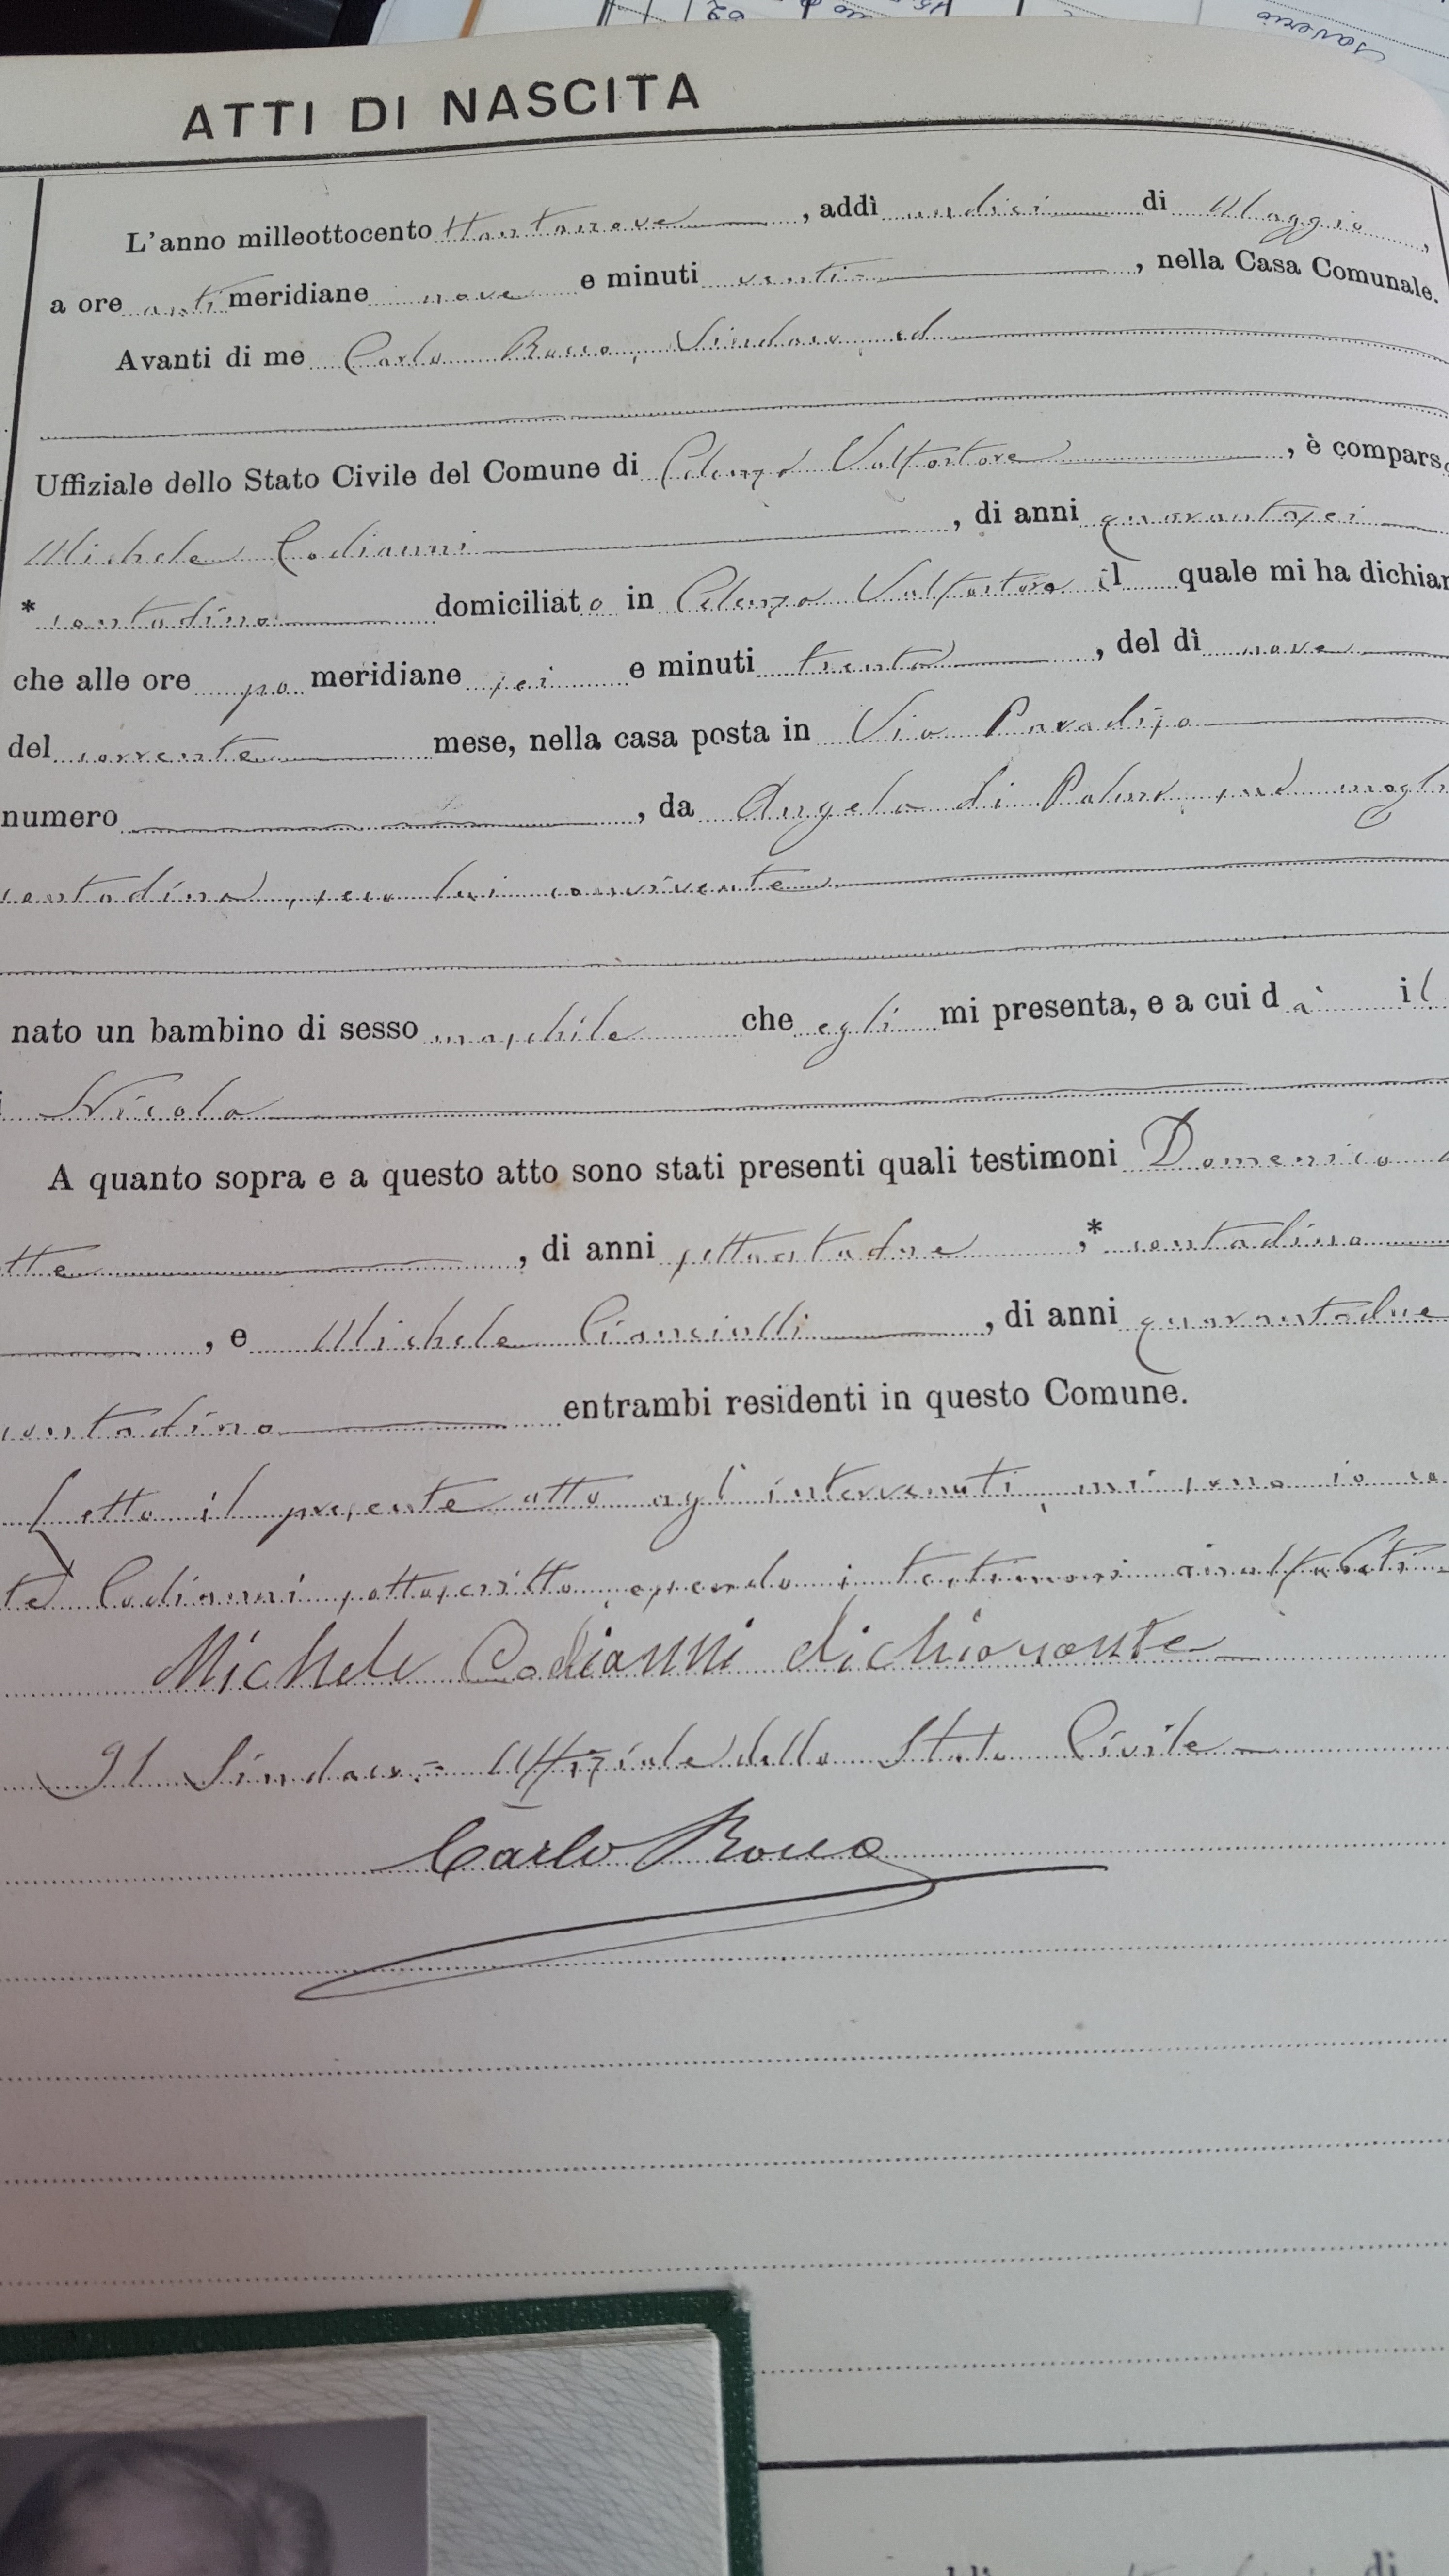 saverio
ATTI DI NASCITA
L'anno milleottocento ottantanove, addì undici di Maggio,
a ore antimeridiane nove e minuti venti, nella Casa Comunale.
Avanti di me Carlo Rocco, Sindaco, ed
Uffiziale dello Stato Civile del Comune di Celenza Valfortore, è compars
Michele Codianni, di anni quarantasei
* contadino domiciliato in Celenza Valfortore il quale mi ha dichiar
che alle ore pomeridiane sei e minuti trenta, del dì nove
del corrente mese, nella casa posta in Via Paradiso
numero, da Angela di Palma sua mogl
contadina, seco lui convivente
nato un bambino di sesso maschile che egli mi presenta, e a cui dà il
i Nicola
A quanto sopra e a questo atto sono stati presenti quali testimoni Domenico
tte, di anni settantadue,* contadino
, e Michele Cianciulli, di anni quarantadue
contadino entrambi residenti in questo Comune.
Letto il presente atto agl'intervenuti, mi sono io co
te Codianni sottoscritto, essendo i testimoni analfabeti
Michele Codianni dichiarante
Il Sindaco = Uffiziale dello Stato Civile
Carlo Rocco
di